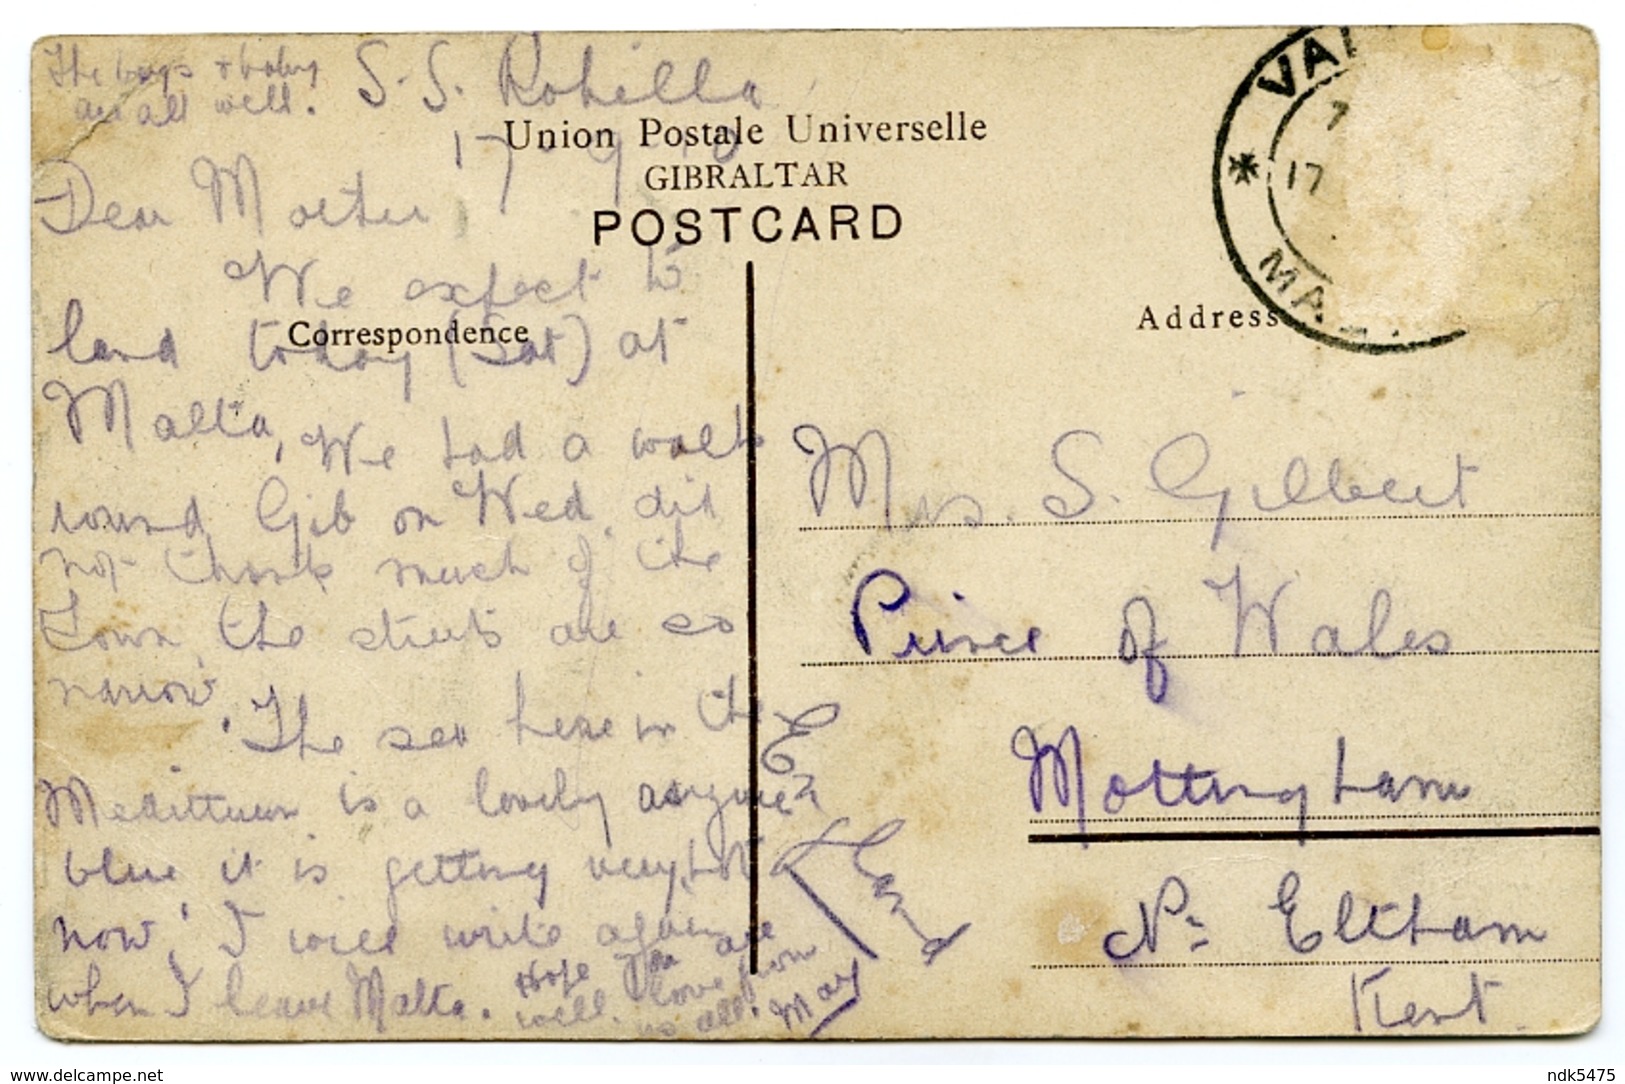 The boys & baby
are all well.
S.S. Rohilla
17-9-10
Union Postale Universelle
GIBRALTAR
POSTCARD
Correspondence
Dear Mother
We expect to
land today (Sat) at
Malta, We had a walk
round Gib on Wed. did
not think much of the
Town, the streets are so
narrow.
The sea here in the
is a lovely
blue it is getting very hot
now, I will write again
when I leave Malta.
Hope you are
well. love from
us all. May
England
Address
Mrs. S. Gilbert
Prince of Wales
Mottingham
Nr Eltham
Kent
VAL
7
17
MA
delcampe.net
ndk5475